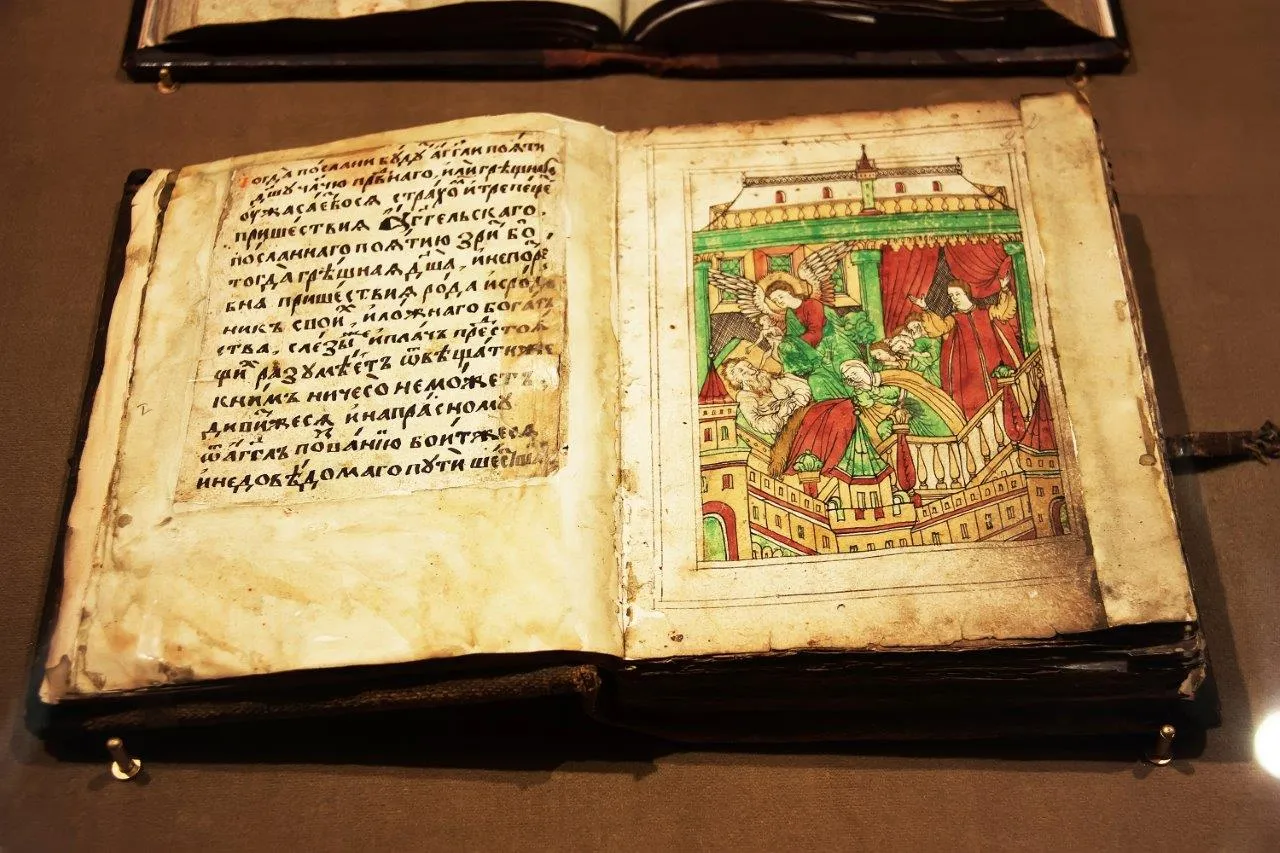 тогда́ по́слани бу́дꙋ а҆́гг҃ли поѧ́ти
дш҃ꙋ ча́чю пра́внаго, и҆лѝ грѣ́шнаго
ѹ҆жаса́ебосѧ стра́хо и҆ тре́пеще
прише́ствиѧ а҆́ггельскаго
по́сланнаго поѧ́тию зри́ бо
тогда̀ грѣ́шнаѧ дш҃а, и҆ непо
бна прише́ствиѧ рода и҆
никъ свои, и҆ ло́жнаго бога́
ства, сле́зы и҆ пла́чь пре́стоѧ
фи разꙋмѣ́етъ ѿвѣща́ти
кни́мъ ничесо̀ не мо́жетъ
диви́жесѧ и҆ напра́сномꙋ
ѿ а҆́гг҃лъ по́ванїю бои́тжесѧ
и҆ недовѣ́домаго пꙋтѝ